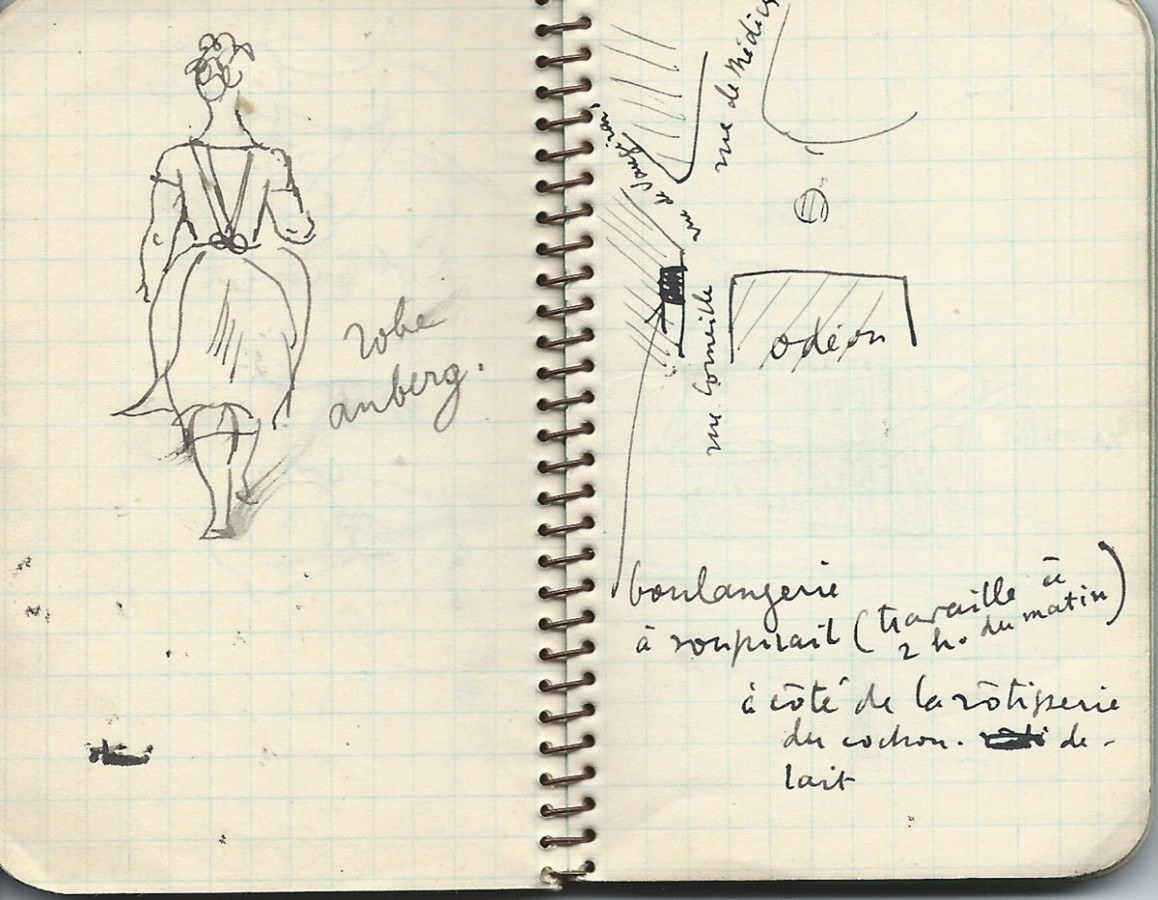 robe
anberg.
rue de Médicis
rue de Vaugirard
rue Corneille
odéon
boulangerie
à soupirail (travaille à
2 h. du matin)
à côté de la rôtisserie
du cochon. de-
lait